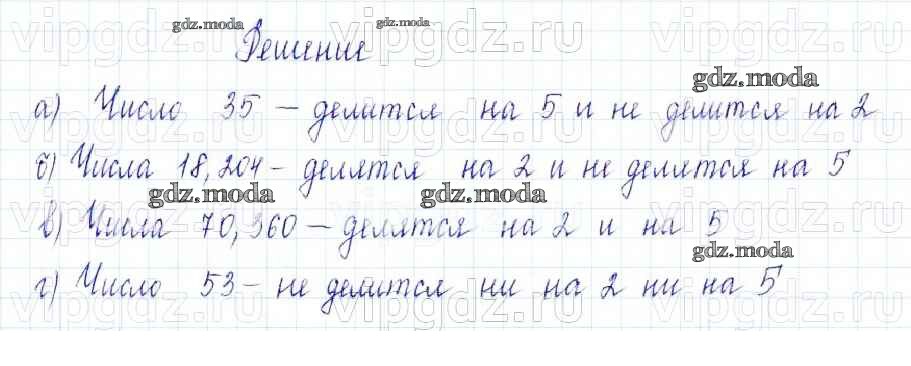 gdz.moda gdz.moda
Решение
gdz.moda
а) Число 35 – делится на 5 и не делится на 2
б) Числа 18, 204 – делятся на 2 и не делятся на 5
gdz.moda gdz.moda
в) Числа 70, 360 – делятся на 2 и на 5
gdz.moda
г) Число 53 – не делится ни на 2 ни на 5
vipgdz.ru vipgdz.ru vipgdz.ru